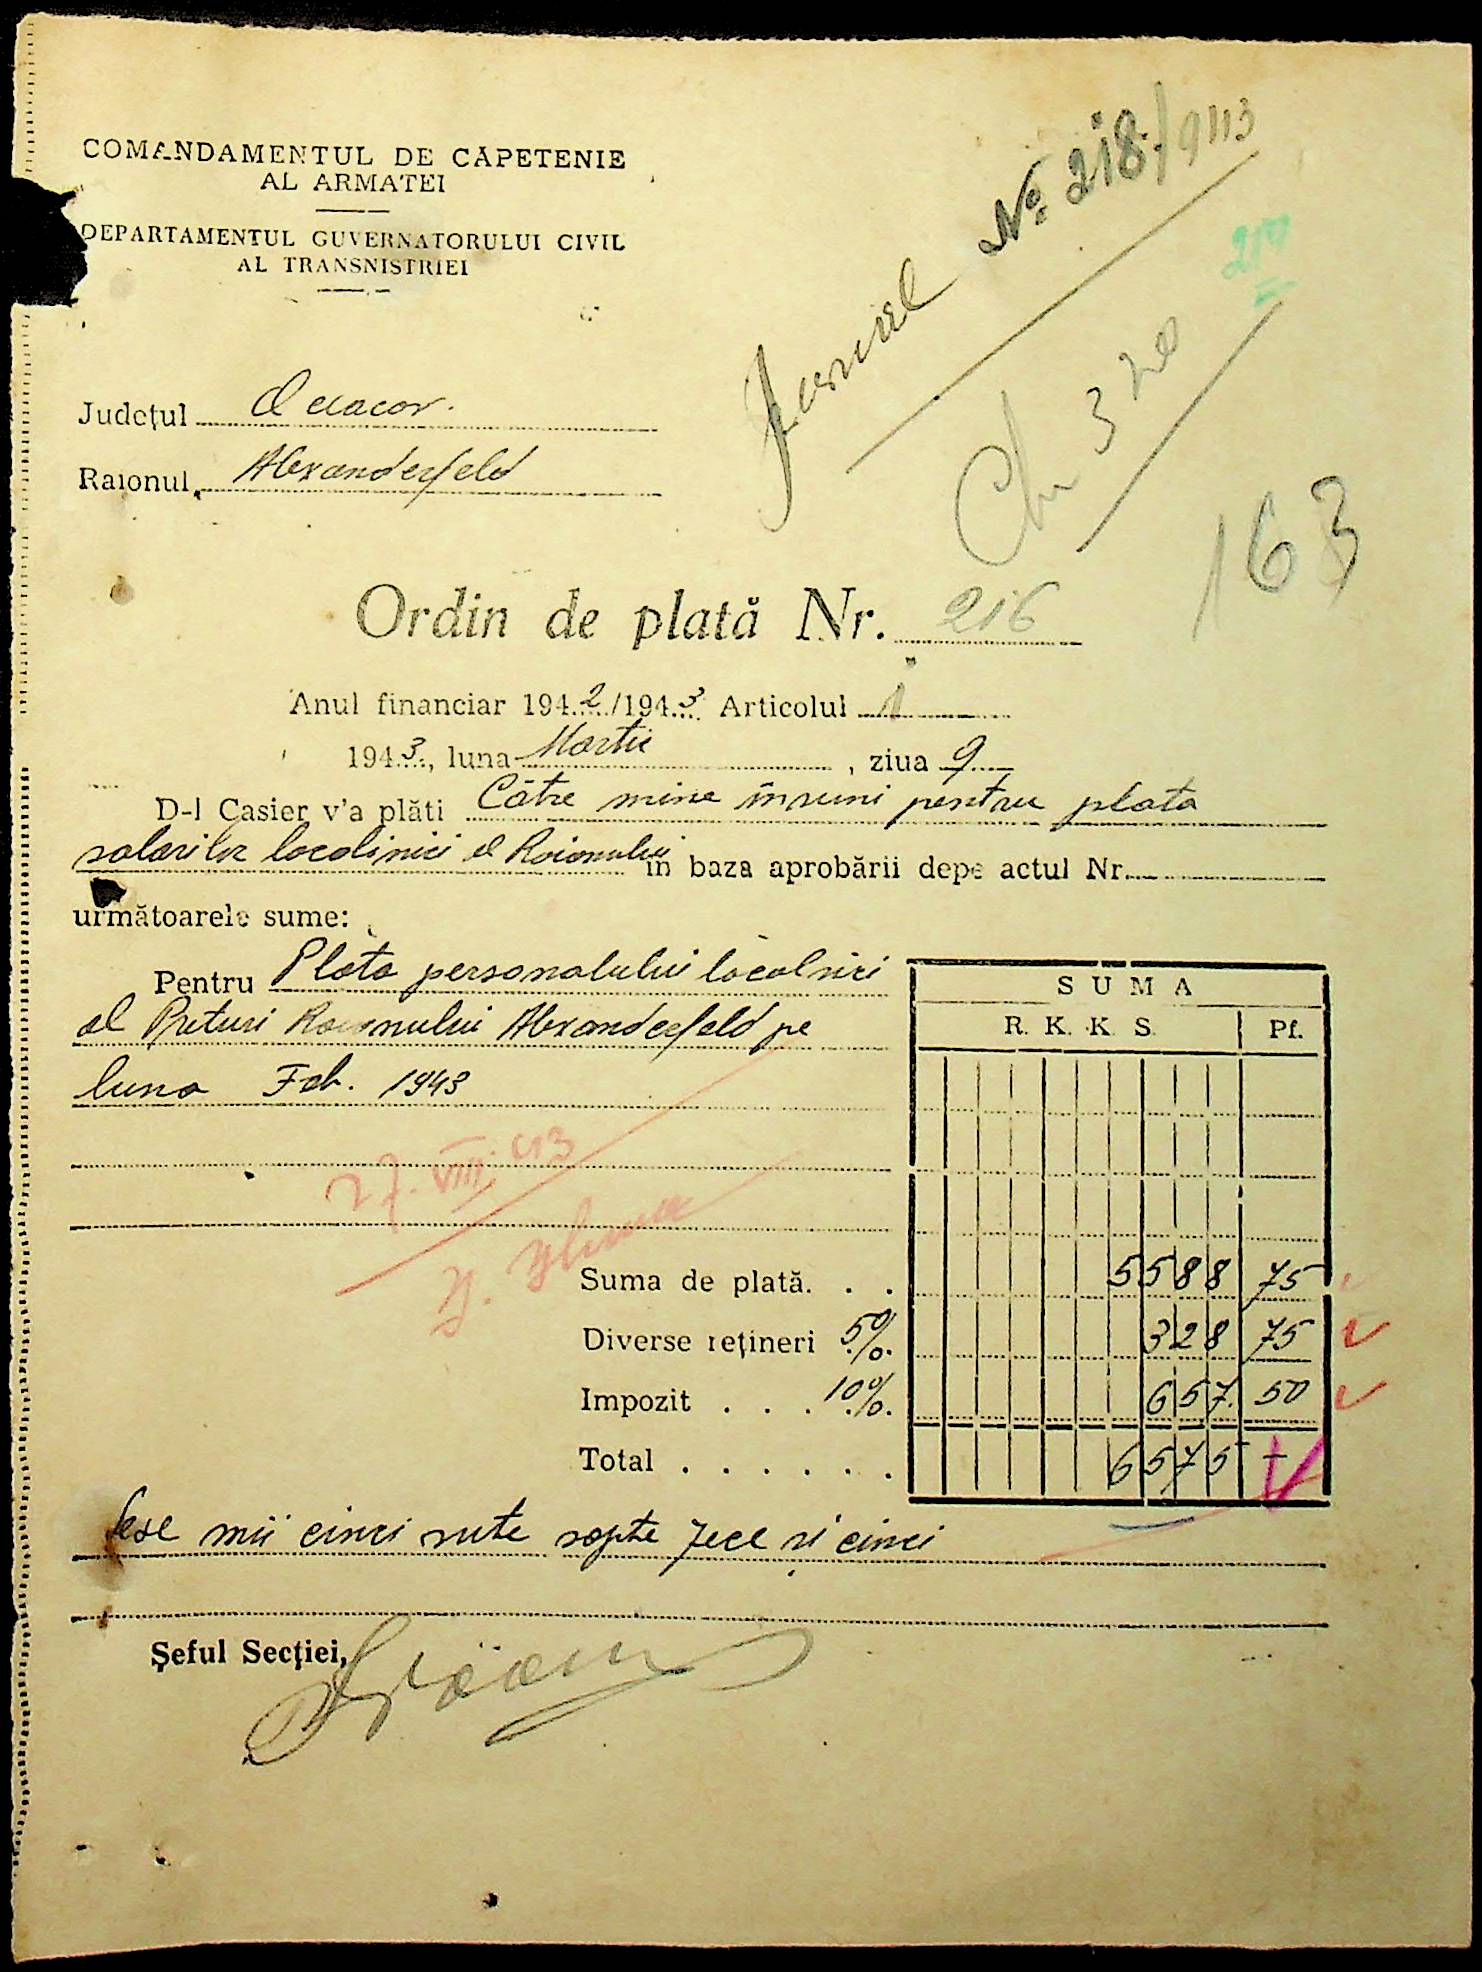 COMANDAMENTUL DE CAPETENIE
AL ARMATEI
DEPARTAMENTUL GUVERNATORULUI CIVIL
AL TRANSNISTRIEI
Jurnal № 218/943
Ch 320
163
Județul Oceacov.
Raionul Alexanderfeld
Ordin de plată Nr. 216
Anul financiar 1942/1943 Articolul 1
1943, luna Martie, ziua 9
D-l Casier v'a plăti Către mine însumi pentru plata
salarilor localinici al Raionului în baza aprobării depe actul Nr.
următoarele sume:
Pentru Plata personalului localnici
al Preturi Raionului Alexanderfeld pe
luna Feb. 1943
SUMA
R. K. K. S. Pf.
27. VIII. 943
Suma de plată. . . 5588 75
Diverse rețineri 5%. 328 75
Impozit . . . 10%. 657. 50
Total . . . . . . . 6575 –
Șase mii cinci sute șapte zece și cinci
Șeful Secției,